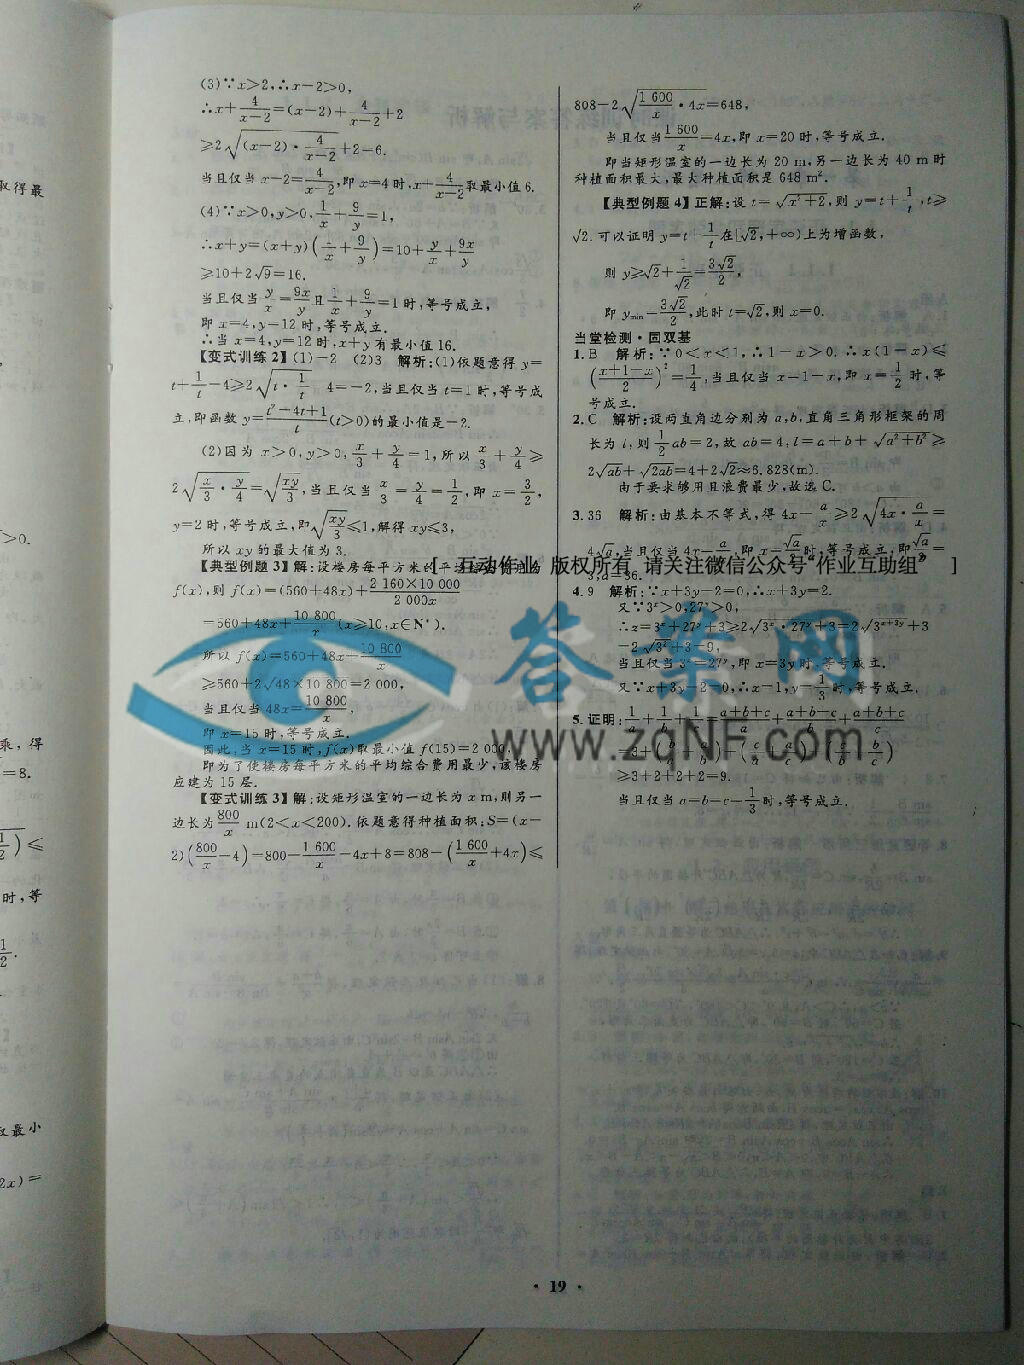 (3)∵x>2,∴x-2>0,
∴x+4/(x-2)=(x-2)+4/(x-2)+2
≥2√((x-2)·4/(x-2))+2=6.
当且仅当 x-2=4/(x-2),即 x=4 时,x+4/(x-2)取最小值 6.
(4)∵x>0,y>0,1/x+9/y=1,
∴x+y=(x+y)(1/x+9/y)=10+y/x+9x/y
≥10+2√9=16.
当且仅当 y/x=9x/y 且 1/x+9/y=1 时,等号成立,
即 x=4,y=12 时,等号成立.
∴当 x=4,y=12 时,x+y 有最小值 16.
【变式训练 2】(1)-2 (2)3 解析:(1)依题意得 y=
t+1/t-4≥2√(t·1/t)-4=-2,当且仅当 t=1 时,等号成
立,即函数 y=(t²-4t+1)/t(t>0)的最小值是-2.
(2)因为 x>0,y>0,x/3+y/4=1,所以 x/3+y/4≥
2√(x/3·y/4)=√(xy/3),当且仅当 x/3=y/4=1/2,即 x=3/2,
y=2 时,等号成立,即√(xy/3)≤1,解得 xy≤3,
所以 xy 的最大值为 3.
【典型例题 3】解:设楼房每平方米的平均
f(x),则 f(x)=(560+48x)+(2 160×10 000)/(2 000x)
=560+48x+10 800/x(x≥10,x∈N*).
所以 f(x)=560+48x+10 800/x
≥560+2√(48×10 800)=2 000,
当且仅当 48x=10 800/x,
即 x=15 时,等号成立.
因此,当 x=15 时,f(x)取最小值 f(15)=2 000,
即为了使楼房每平方米的平均综合费用最少,该楼房
应建为 15 层.
【变式训练 3】解:设矩形温室的一边长为 x m,则另一
边长为800/x m(2<x<200).依题意得种植面积:S=(x-
2)(800/x-4)=800-1 600/x-4x+8=808-(1 600/x+4x)≤
808-2√(1 600/x·4x)=648,
当且仅当1 600/x=4x,即 x=20 时,等号成立.
即当矩形温室的一边长为 20 m,另一边长为 40 m 时
种植面积最大,最大种植面积是 648 m².
【典型例题 4】正解:设 t=√(x²+2),则 y=t+1/t,t≥
√2.可以证明 y=t+1/t在[√2,+∞)上为增函数,
则 y≥√2+1/√2=3√2/2,
即 ymin=3√2/2,此时 t=√2,则 x=0.
当堂检测·固双基
1.B 解析:∵0<x<1,∴1-x>0.∴x(1-x)≤
((x+1-x)/2)²=1/4,当且仅当 x=1-x,即 x=1/2 时,等
号成立.
2.C 解析:设两直角边分别为 a,b,直角三角形框架的周
长为 l,则 1/2ab=2,故 ab=4,l=a+b+√(a²+b²)≥
2√ab+√2ab=4+2√2≈6.828(m).
由于要求够用且浪费最少,故选 C.
3.36 解析:由基本不等式,得 4x+a/x≥2√(4x·a/x)=
4√a,当且仅当 4x=a/x,即 x=√a/2时,等号成立,即√a/2=
3,a=36.
[ 互动作业 版权所有 请关注微信公众号“作业互助组” ]
4.9 解析:∵x+3y-2=0,∴x+3y=2.
又∵3ˣ>0,27ʸ>0,
∴z=3ˣ+27ʸ+3≥2√(3ˣ·27ʸ)+3=2√(3ˣ⁺³ʸ)+3
=2√3²+3=9,
当且仅当 3ˣ=27ʸ,即 x=3y 时,等号成立.
又∵x+3y-2=0,∴x=1,y=1/3时,等号成立.
5.证明:1/a+1/b+1/c=(a+b+c)/a+(a+b+c)/b+(a+b+c)/c
=3+(b/a+a/b)+(c/a+a/c)+(c/b+b/c)
≥3+2+2+2=9.
当且仅当 a=b=c=1/3时,等号成立.
答案网
www.zqNF.com
取得最
>0.
乘,得
=8.
时,等
取最小
2x)=
· 19 ·